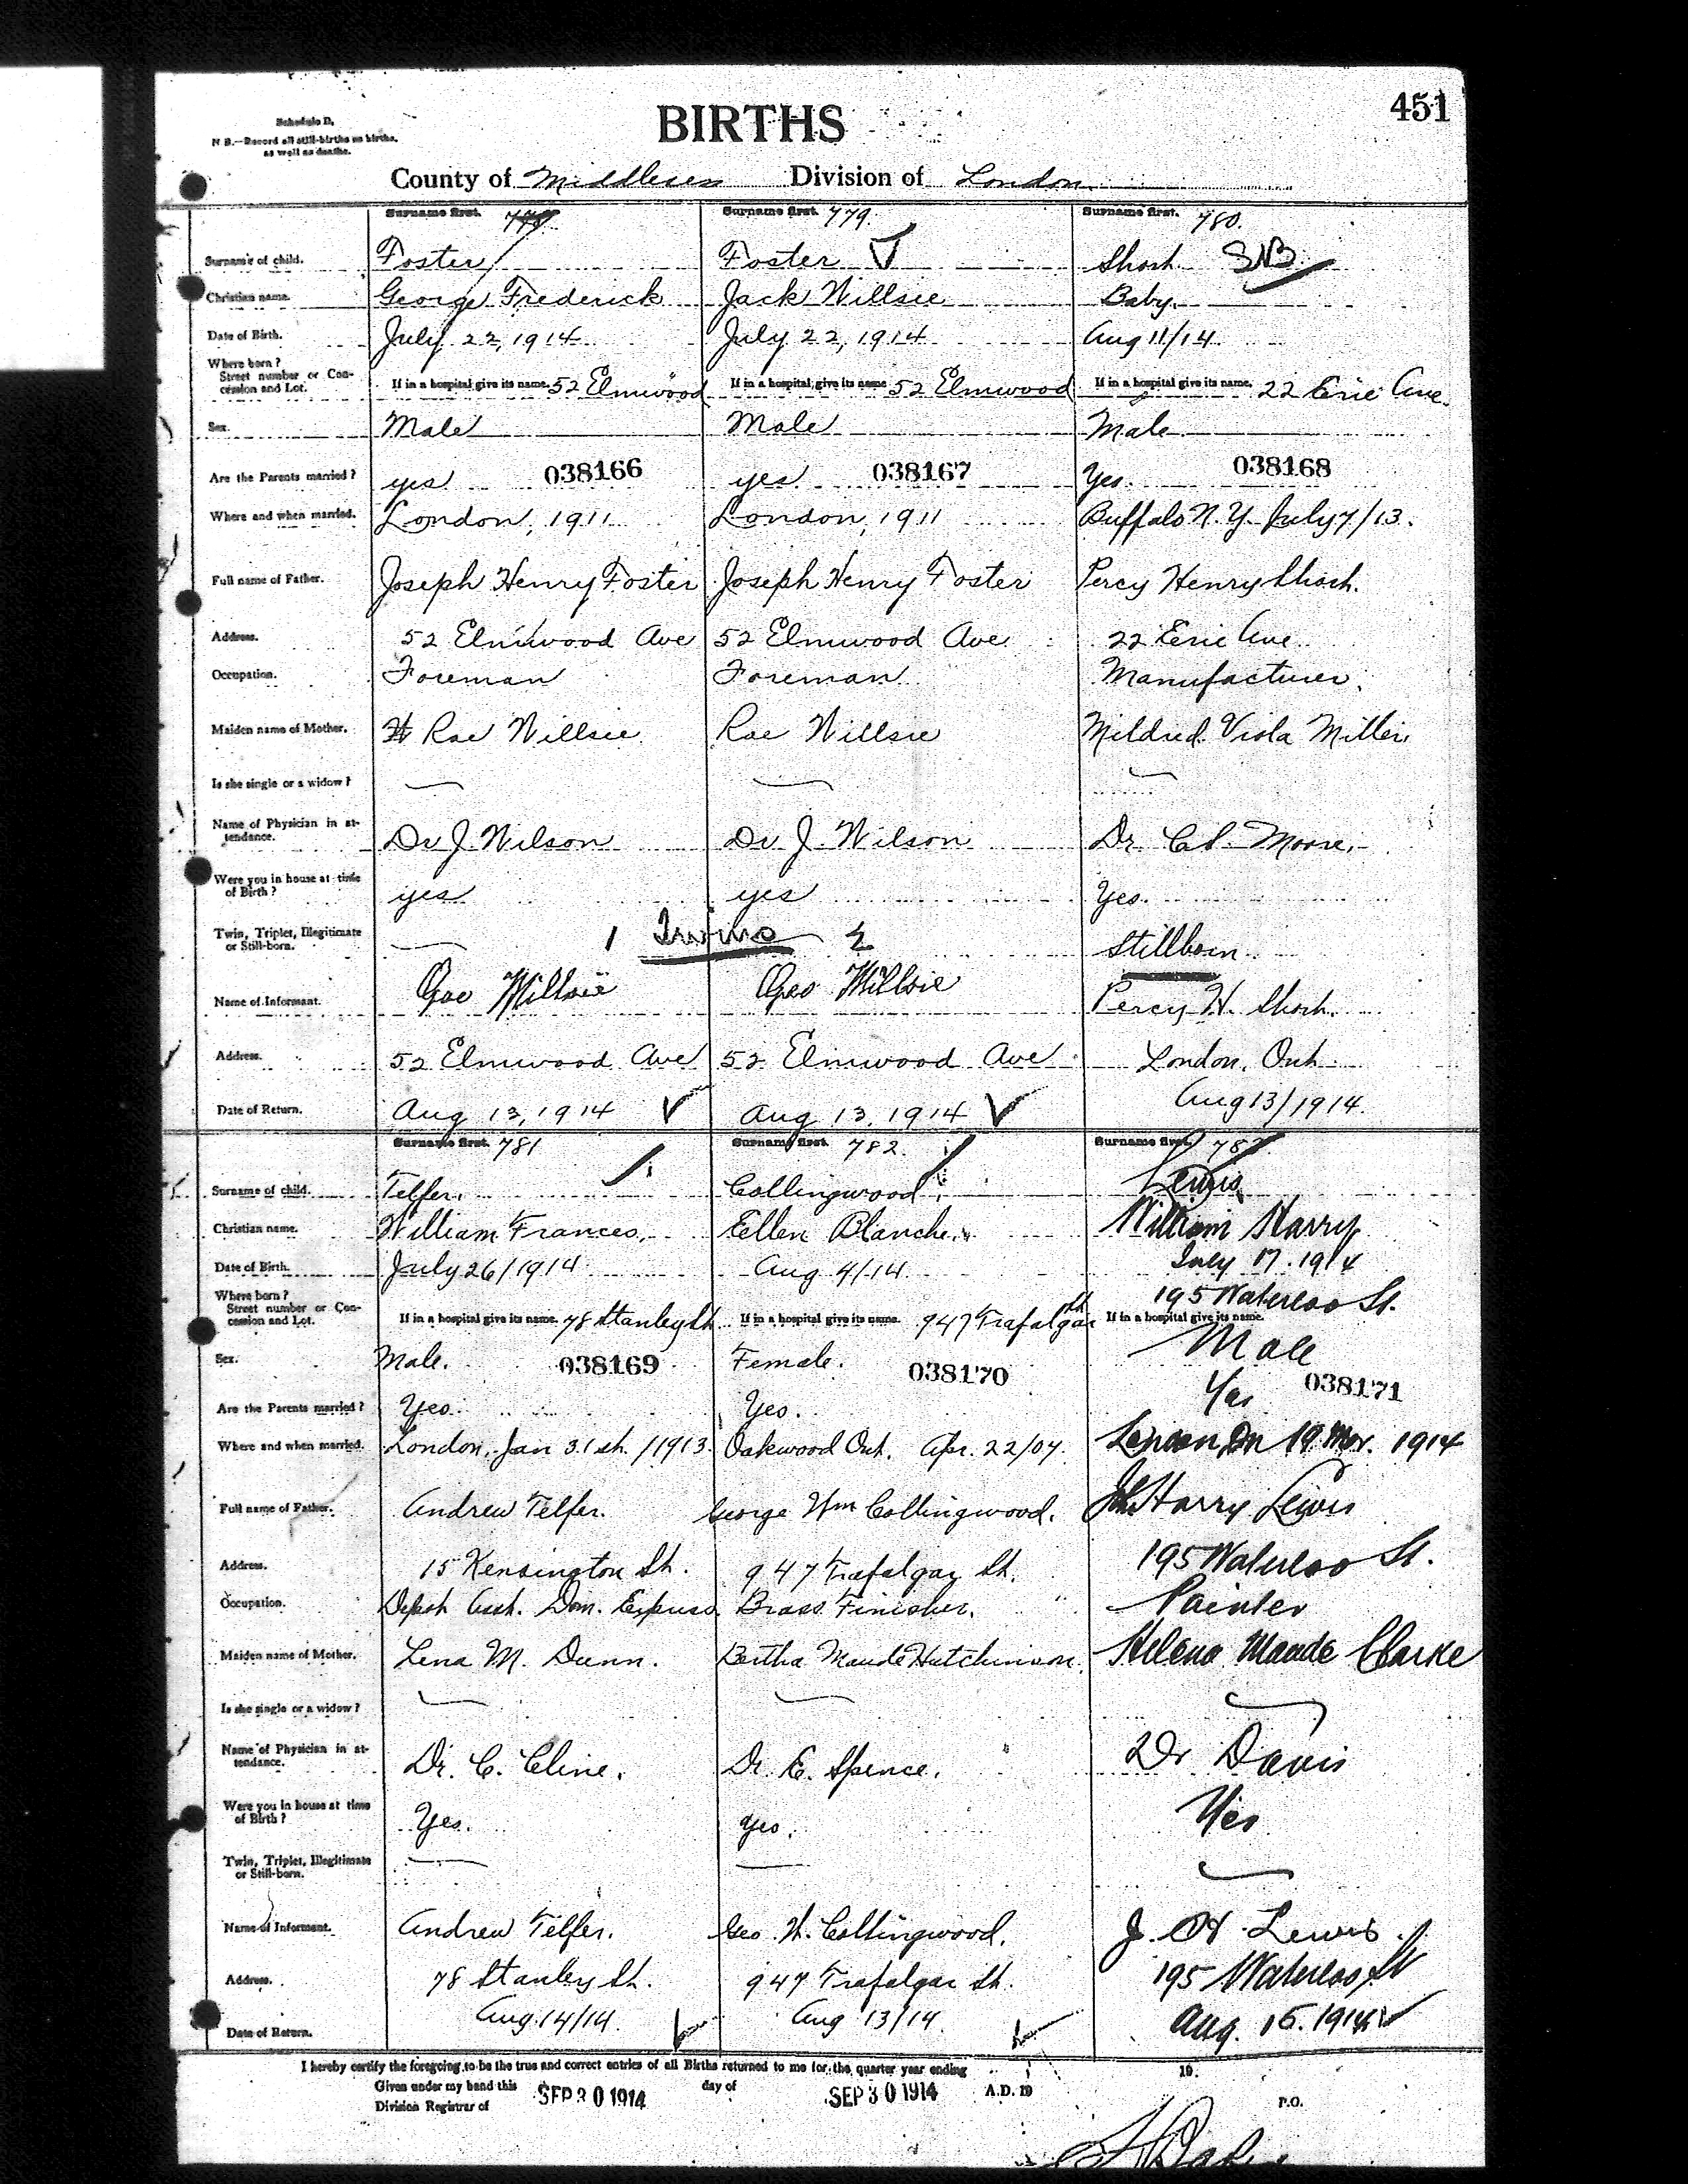 451
Schedule D.
N B.—Record all still-births as births,
as well as deaths.
BIRTHS
County of Middlesex Division of London
Surname first. 779. Surname first. 780.
Surname first.
Surname of child. Foster Foster Short SNB
Christian name. George Frederick Jack Willsie Baby.
Date of Birth. July 22, 1914 July 22, 1914 Aug 11/14
Where born?
Street number or Con-
cession and Lot. If in a hospital give its name. 52 Elmwood If in a hospital give its name 52 Elmwood If in a hospital give its name. 22 Erie Ave.
Sex. Male Male Male
Are the Parents married? yes 038166 yes 038167 Yes. 038168
Where and when married. London, 1911 London, 1911 Buffalo N.Y. July 7/13.
Full name of Father. Joseph Henry Foster Joseph Henry Foster Percy Henry Short.
Address. 52 Elmwood Ave 52 Elmwood Ave 22 Erie Ave.
Occupation. Foreman Foreman Manufacturer.
Maiden name of Mother. Rae Willsie Rae Willsie Mildred Viola Miller.
Is she single or a widow? — — —
Name of Physician in at-
tendance. Dr J. Wilson Dr J. Wilson Dr. Moore.
Were you in house at time
of Birth? yes yes Yes.
Twin, Triplet, Illegitimate
or Still-born. — 1 Twins 2 Stillborn
Name of Informant. Geo Willsie Geo Willsie Percy H. Short.
Address. 52 Elmwood Ave 52 Elmwood Ave London, Ont.
Date of Return. Aug 13, 1914 ✓ Aug 13, 1914 ✓ Aug 13/1914.
Surname first. 781 Surname first. 782. Surname first. 783
Surname of child. Telfer. Collingwood. Lewis
Christian name. William Frances. Ellen Blanche. William Harry
Date of Birth. July 26/1914 Aug 4/14. July 17. 1914
Where born?
Street number or Con-
cession and Lot. If in a hospital give its name. 78 Stanley St. If in a hospital give its name. 947 Trafalgar St. If in a hospital give its name. 195 Waterloo St.
Sex. Male. 038169 Female. 038170 Male
Are the Parents married? Yes. Yes. Yes 038171
Where and when married. London, Jan 31st. /1913. Oakwood Ont. Apr. 22/07. 1914
Full name of Father. Andrew Telfer. George Wm Collingwood. Harry Lewis
Address. 15 Kensington St. 947 Trafalgar St. 195 Waterloo St.
Occupation. Depot Asst. Dom. Express. Brass Finisher. Painter
Maiden name of Mother. Lena M. Dunn. Bertha Maude Hutchinson. Helena Maude Clarke
Is she single or a widow? — — —
Name of Physician in at-
tendance. Dr. C. Cline. Dr. E. Spence. Dr Davis
Were you in house at time
of Birth? Yes. yes. Yes
Twin, Triplet, Illegitimate
or Still-born. — — —
Name of Informant. Andrew Telfer. Geo. W. Collingwood. J. H. Lewis.
Address. 78 Stanley St. 947 Trafalgar St. 195 Waterloo St
Date of Return. Aug. 14/14. ✓ Aug 13/14. ✓ Aug. 16. 1914 ✓
I hereby certify the foregoing to be the true and correct entries of all Births returned to me for the quarter year ending 19.
Given under my hand this SEP 30 1914 day of SEP 30 1914 A.D. 19
Division Registrar of P.O.